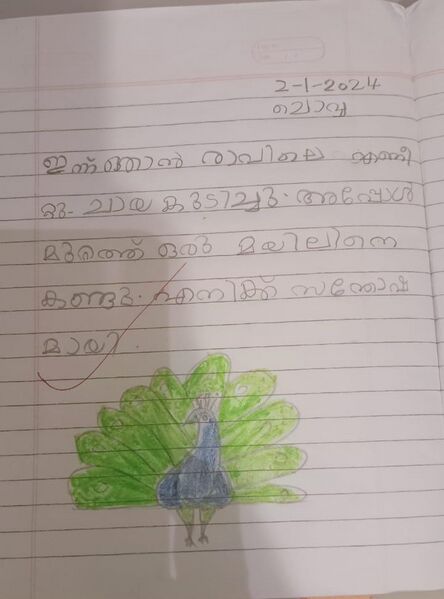 2-1-2024
ചൊവ്വ
ഇന്ന് ഞാൻ രാവിലെ എണീ
റ്റു. ചായ കുടിച്ചു. അപ്പോൾ
മുറ്റത്ത് ഒരു മയിലിനെ
കണ്ടു. എനിക്ക് സന്തോഷ
മായി.